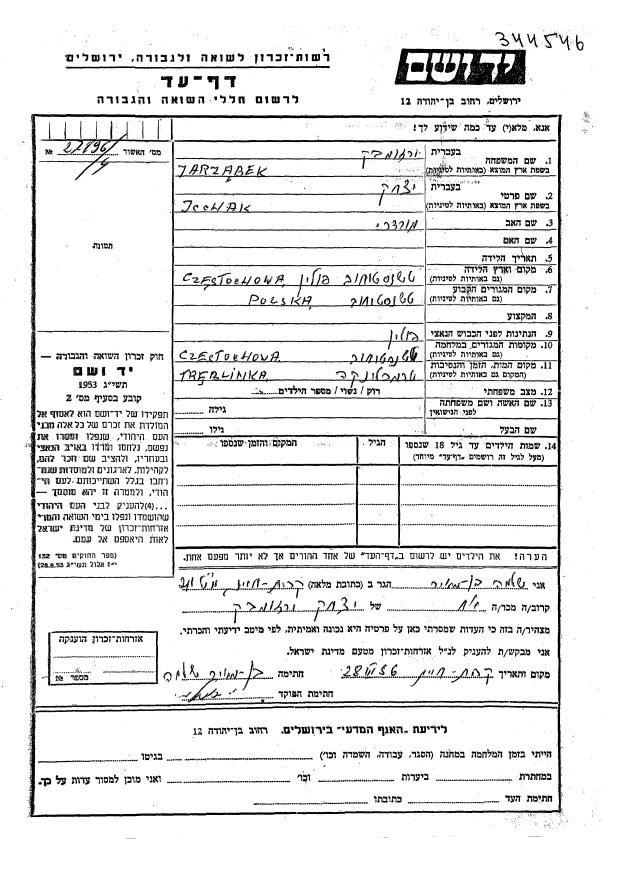 344546
רשות-זכרון לשואה ולגבורה, ירושלים
דף-עד
לרשום חללי השואה והגבורה
יד ושם
ירושלים, רחוב בן-יהודה 12
מס׳ האשור №
תמונה
אנא, מלא(י) עד כמה שידוע לך!
1. שם המשפחה
בעברית
בשפת ארץ המוצא (באותיות לטיניות)
JARZĄBEK
2. שם פרטי
בעברית יצחק
בשפת ארץ המוצא (באותיות לטיניות)
ICCHAK
3. שם האב מורדכי
4. שם האם
5. תאריך הלידה
6. מקום וארץ הלידה
(גם באותיות לטיניות)
טשנסטוחוב פולין CZĘSTOCHOWA
7. מקום המגורים הקבוע
(גם באותיות לטיניות)
טשנסטוחוב POLSKA
8. המקצוע
9. הנתינות לפני הכבוש הנאצי פולין
10. מקומות המגורים במלחמה
(גם באותיות לטיניות)
טשנסטוחוב CZĘSTOCHOWA
11. מקום המות, הזמן והנסיבות
(המקום גם באותיות לטיניות)
טרבלינקה TREBLINKA
12. מצב משפחתי
רווק / נשוי / מספר הילדים
13. שם האשה ושם משפחתה
לפני הנישואין
גילה
שם הבעל
גילו
14. שמות הילדים עד גיל 18 שנספו
(מעל לגיל זה רושמים "דף-עד" מיוחד)
הגיל
המקום והזמן שנספו
חוק זכרון השואה והגבורה —
יד ושם
תשי״ג 1953
קובע בסעיף מס׳ 2
תפקידו של יד-ושם הוא לאסוף אל
המולדת את זכרם של כל אלה מבני
העם היהודי, שנפלו ומסרו את
נפשם, נלחמו ומרדו באויב הנאצי
ובעוזריו, ולהציב שם וזכר להם,
לקהילות, לארגונים ולמוסדות שנח-
רבו בגלל השתייכותם לעם הי-
הודי, ולמטרה זו יהא מוסמך —
...(4) להעניק לבני העם היהודי
שהושמדו ונפלו בימי השואה והמרי
אזרחות-זכרון של מדינת ישראל
לאות היאספם אל עמם.
(ספר החוקים מס׳ 132
י״ז אלול תשי״ג 28.8.53)
הערה! את הילדים יש לרשום ב"דף-העד" של אחד ההורים אך לא יותר מפעם אחת.
אני שלמה בן-מאיר הגר ב (כתובת מלאה) קרית-חיים
קרוב/ה מכר/ה של יצחק
מצהיר/ה בזה כי העדות שמסרתי כאן על פרטיה היא נכונה ואמיתית, לפי מיטב ידיעתי והכרתי.
אני מבקש/ת להעניק לנ״ל אזרחות-זכרון מטעם מדינת ישראל.
מקום ותאריך קרית-חיים חתימה בן-מאיר שלמה
חתימת הפוקד
אזרחות-זכרון הוענקה
מספר №
לידיעת "האגף המדעי" בירושלים, רחוב בן-יהודה 12
הייתי בזמן המלחמה במחנה (הסגר, עבודה, השמדה וכו׳) בגיטו
במחתרת ביערות וכו׳ ואני מוכן למסור עדות על כך.
חתימת העד כתובתו